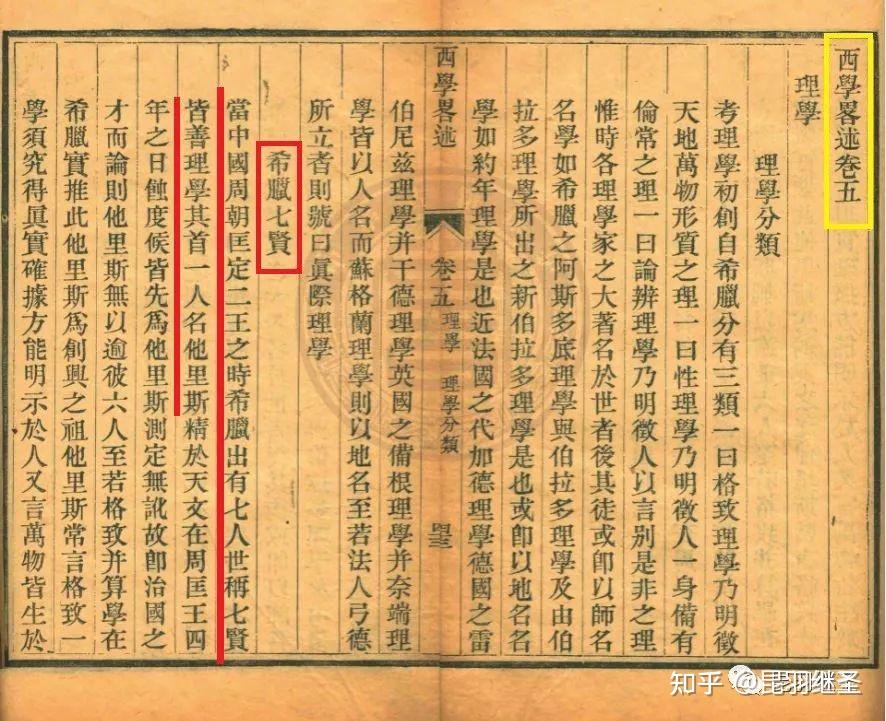 西學畧述卷五
理學
理學分類
考理學初創自希臘分有三類一曰格致理學乃明徵
天地萬物形質之理一曰性理學乃明徵人一身備有
倫常之理一曰論辨理學乃明徵人以言别是非之理
惟時各理學家之大著名於世者後其徒或卽以師名
名學如希臘之阿斯多底理學與伯拉多理學及由伯
拉多理學所出之新伯拉多理學是也或卽以地名名
學如約年理學是也近法國之代加德理學德國之雷
西學畧述
卷五
理學
理學分類
四三
伯尼兹理學并干德理學英國之備根理學并奈端理
學皆以人名而蘇格蘭理學則以地名至若法人弓德
所立者則號曰眞際理學
希臘七賢
當中國周朝匡定二王之時希臘出有七人世稱七賢
皆善理學其首一人名他里斯精於天文在周匡王四
年之日蝕度候皆先爲他里斯測定無訛故卽治國之
才而論則他里斯無以逾彼六人至若格致并算學在
希臘實推此他里斯爲創興之祖他里斯常言格致一
學須究得眞實確據方能明示於人又言萬物皆生於
知乎 @昆羽继圣